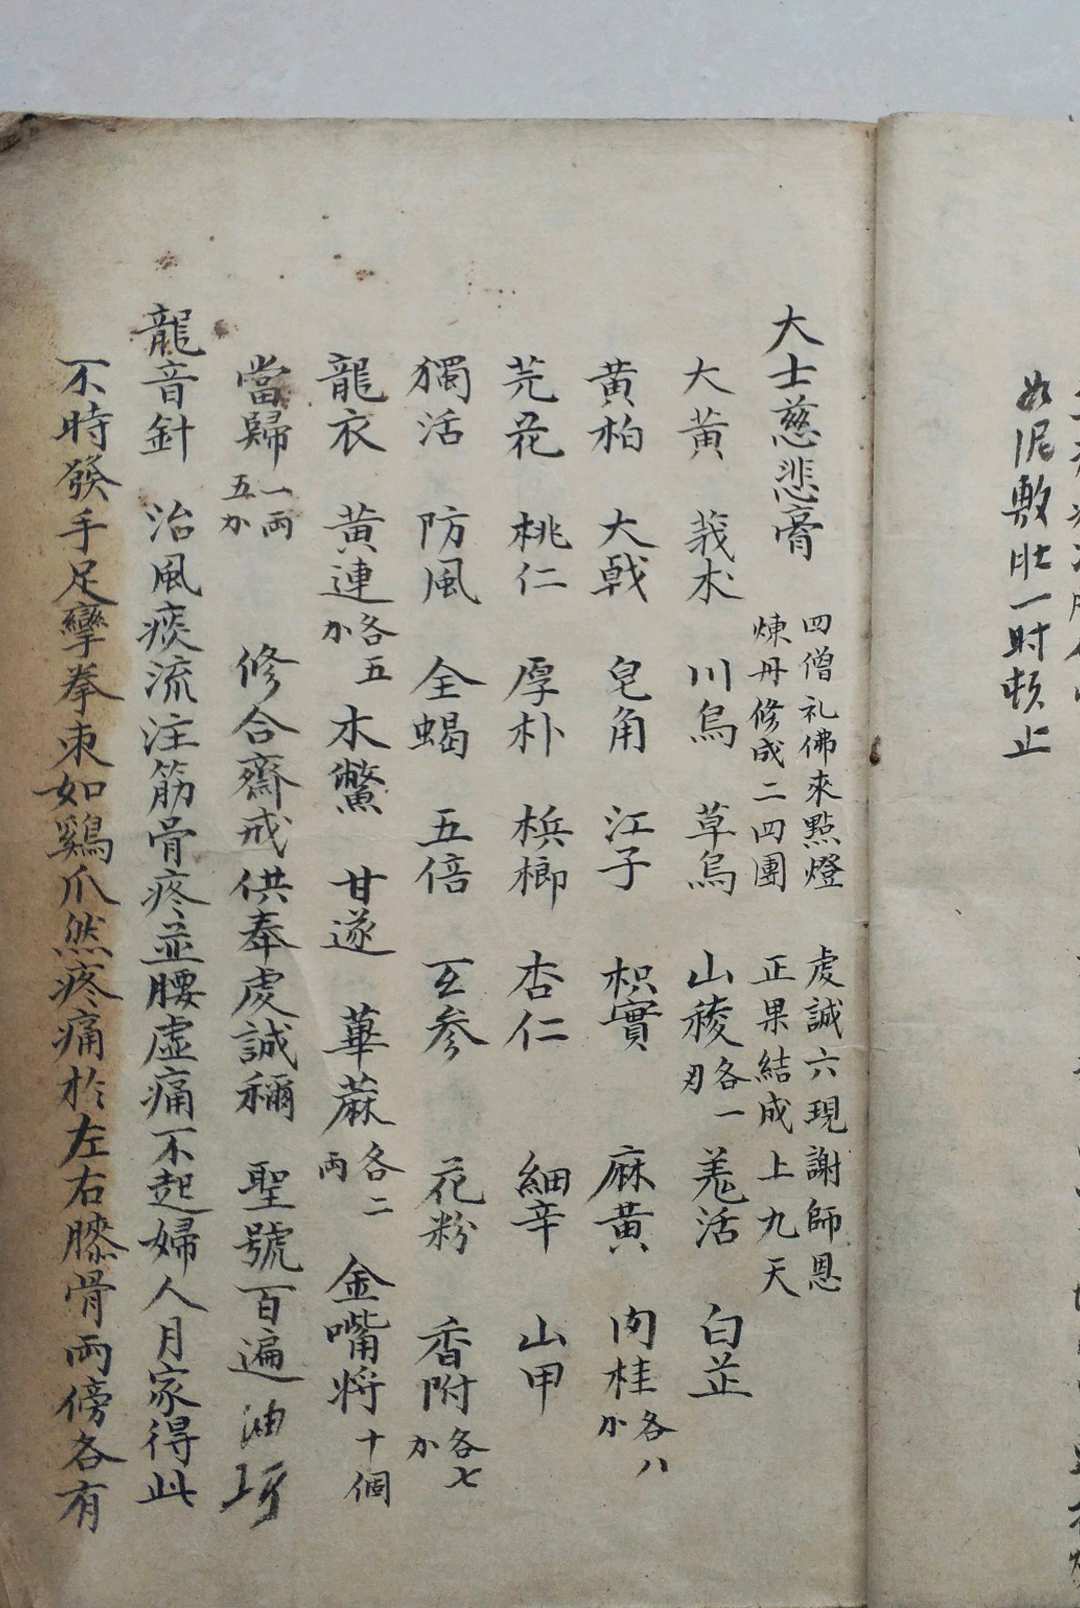 如泥敷肚一时頼止
大士慈悲膏 四僧礼佛來點燈 煉丹修成二四團 虔誠六現謝師恩 正果結成上九天
大黄 莪朮 川烏 草烏 山稜各一刄 羗活 白芷
黄柏 大戟 皂角 江子 枳實 麻黄 肉桂各八
芫花 桃仁 厚朴 梹榔 杏仁 細辛 山甲
獨活 防風 全蝎 五倍 玄参 花粉 香附各七
龍衣 黄連各五 木鱉 甘遂 萆蔴各二両 金嘴将十個
當歸一両五 修合齋戒供奉虔誠稱 聖號百遍 油
龍音針 治風痰流注筋骨疼並腰虛痛不起婦人月家得此
不時發手足攣拳束如鷄爪然疼痛於左右膝骨両傍各有